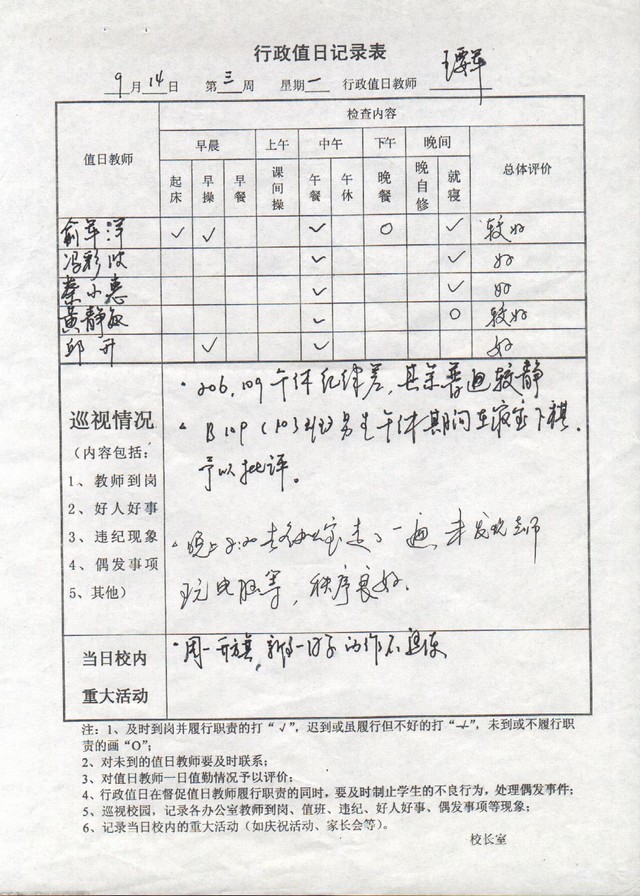 行政值日记录表
9月14日 第三周 星期一 行政值日教师
值日教师 检查内容
早晨 上午 中午 下午 晚间 总体评价
起床 早操 早餐 课间操 午餐 午休 晚餐 晚自修 就寝
俞军洋 ✓ ✓ ✓ O ✓ 较好
冯彩波 ✓ ✓ 好
秦小惠 ✓ ✓ 好
黄静敏 ✓ O 较好
邱开 ✓ ✓ 好
巡视情况
(内容包括:
1、教师到岗
2、好人好事
3、违纪现象
4、偶发事项
5、其他)
·206,109午休纪律差,其余普遍较静
·B109(103班)男生午休期间在寝室下棋,
予以批评。
·晚上8:20去各办公室走了一遍,未发现老师
玩电脑等,秩序良好.
当日校内
重大活动
·周一升旗,
注:1、及时到岗并履行职责的打“√”,迟到或虽履行但不好的打“ ”,未到或不履行职
责的画“O”;
2、对未到的值日教师要及时联系;
3、对值日教师一日值勤情况予以评价;
4、行政值日在督促值日教师履行职责的同时,要及时制止学生的不良行为,处理偶发事件;
5、巡视校园,记录各办公室教师到岗、值班、违纪、好人好事、偶发事项等现象;
6、记录当日校内的重大活动(如庆祝活动、家长会等)。
校长室